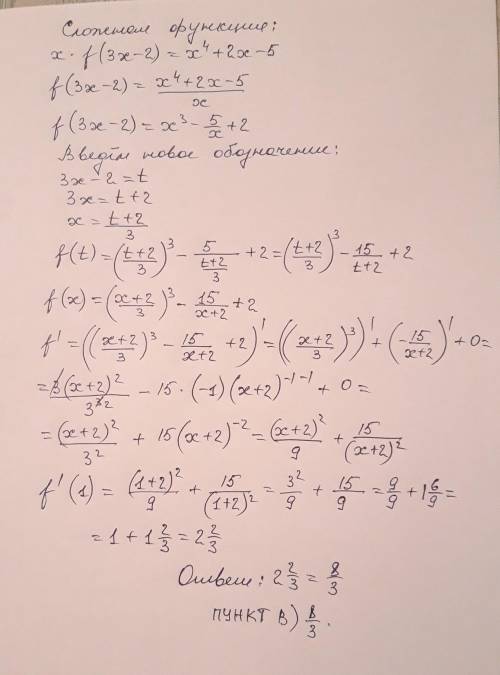 Сложная функция:
x · f(3x-2) = x⁴ + 2x - 5
f(3x-2) = (x⁴ + 2x - 5)/x
f(3x-2) = x³ - 5/x + 2
Введём новое обозначение:
3x - 2 = t
3x = t + 2
x = (t+2)/3
f(t) = ((t+2)/3)³ - 5/((t+2)/3) + 2 = ((t+2)/3)³ - 15/(t+2) + 2
f(x) = ((x+2)/3)³ - 15/(x+2) + 2
f' = (((x+2)/3)³ - 15/(x+2) + 2)' = (((x+2)/3)³)' + (-15/(x+2))' + 0 =
= 3(x+2)²/3³ ² - 15 · (-1)(x+2)⁻¹⁻¹ + 0 =
= (x+2)²/3² + 15(x+2)⁻² = (x+2)²/9 + 15/(x+2)²
f'(1) = (1+2)²/9 + 15/(1+2)² = 3²/9 + 15/9 = 9/9 + 1 6/9 =
= 1 + 1 2/3 = 2 2/3
Ответ: 2 2/3 = 8/3
ПУНКТ В) 8/3.